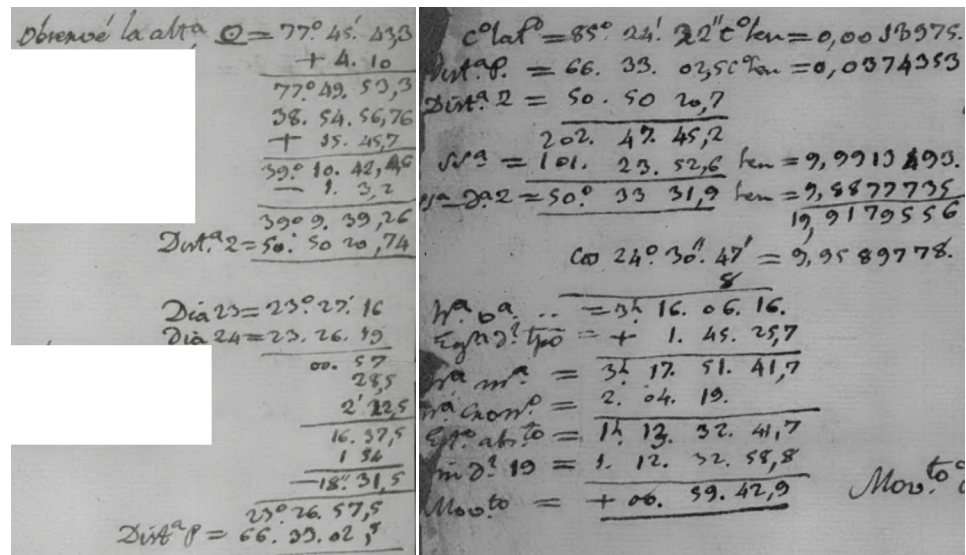 Observé la alt.ª ⊙ = 77º 45'. 43,3
+ 4. 10
77º 49. 53,3
38. 54. 56,76
+ 15. 45,7
39º 10. 42,46
– 1. 3,2
39º 9. 39,26
Dist.ª 2 = 50º 50 20,74
Dia 23 = 23º. 27'. 16
Dia 24 = 23. 26. 19
00. 57
28,5
2' 22,5
16. 37,5
1 54
– 18". 31,5
23º. 26. 57,5
Dist.ª P = 66. 33. 02,5
cº latº = 85º. 24'. 22" cº sen = 0,0013975.
Dist.ª P. = 66. 33. 02,5 cº sen = 0,0374353
Dist.ª 2 = 50. 50 20,7
202. 47. 45,2
= 101. 23. 52,6 sen = 9,9913493.
2 = 50º 33 31,9 sen = 9,8877735
19,9179556
cos 24º. 30'' 47' = 9,9589778.
8
= 3h 16. 06. 16.
tpo = + 1. 45. 25,7
= 3h 17. 51. 41,7
= 2. 04. 19.
= 1h. 13. 32. 41,7
19 = 1. 12. 32. 58,8
Mov.to = + 00. 59. 42,9
Mov.to